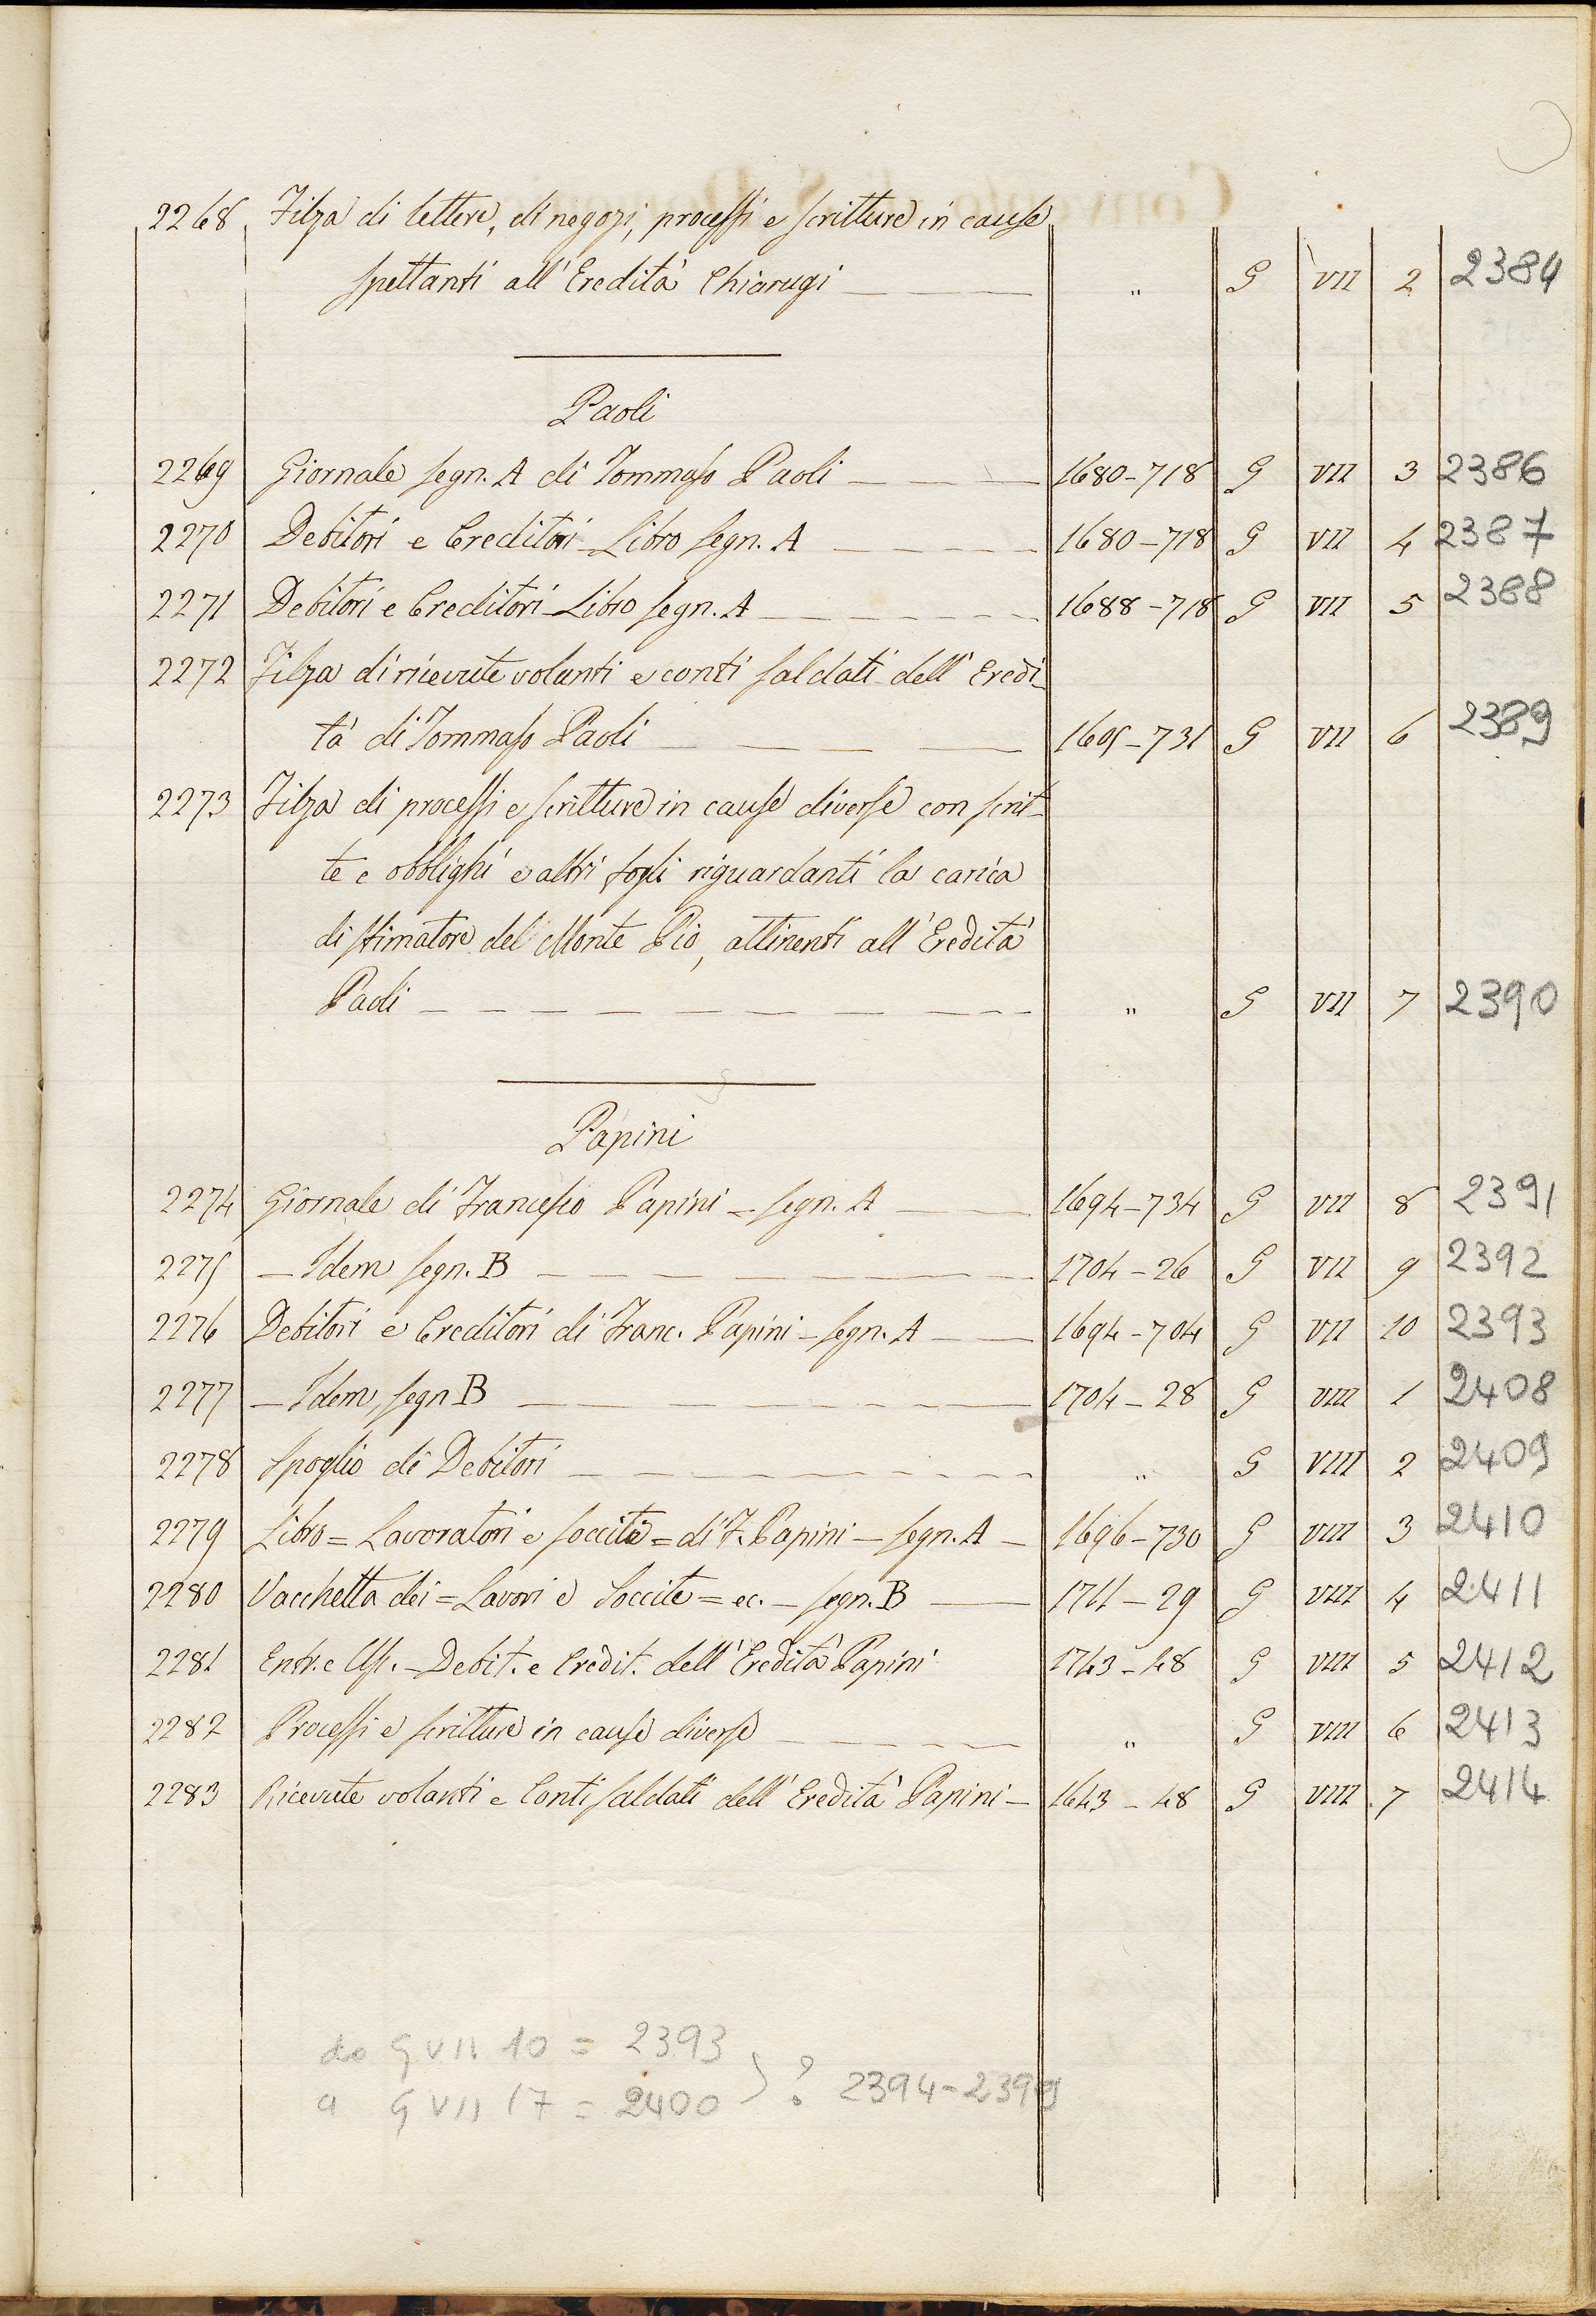 2268 Filza di lettere, di negozj, processi e scritture in cause
spettanti all'Eredità Chiarugi — " G VII 2 2384
Paoli
2269 Giornale segn. A di Tommaso Paoli — — — 1680-718 G VII 3 2386
2270 Debitori e Creditori - Libro segn. A — — — — 1680-718 G VII 4 2387
2271 Debitori e Creditori - Libro segn. A — — — — 1688-718 G VII 5 2388
2272 Filza di ricevute volanti e conti saldati dell'Eredi-
tà di Tommaso Paoli — — — — 1605-731 G VII 6 2389
2273 Filza di processi e scritture in cause diverse con scrit-
te e obblighi e altri fogli riguardanti la carica
di stimatore del Monte Pio, attinenti all'Eredità
Paoli — — — — — — — — " G VII 7 2390
Papini
2274 Giornale di Francesco Papini = segn. A — — 1694-734 G VII 8 2391
2275 — Idem segn. B — — — — — — — 1704-26 G VII 9 2392
2276 Debitori e Creditori di Franc. Papini - segn. A — — 1694-704 G VII 10 2393
2277 — Idem, segn B — — — — — — 1704-28 G VIII 1 2408
2278 Spoglio di Debitori — — — — — — — — " G VIII 2 2409
2279 Libro = Lavoratori e soccite = di F. Papini - segn. A — 1696-730 G VIII 3 2410
2280 Vacchetta dei = Lavori e Soccite = ec. - segn. B — 1711-29 G VIII 4 2411
2281 Entr. e Usc. - Debit. e Credit. dell'Eredità Papini 1743-48 G VIII 5 2412
2282 Processi e scritture in cause diverse — — — — " G VIII 6 2413
2283 Ricevute volanti e Conti saldati dell'Eredità Papini — 1643-48 G VIII 7 2414
da G VII 10 = 2393
a G VII 17 = 2400 } ? 2394-2399